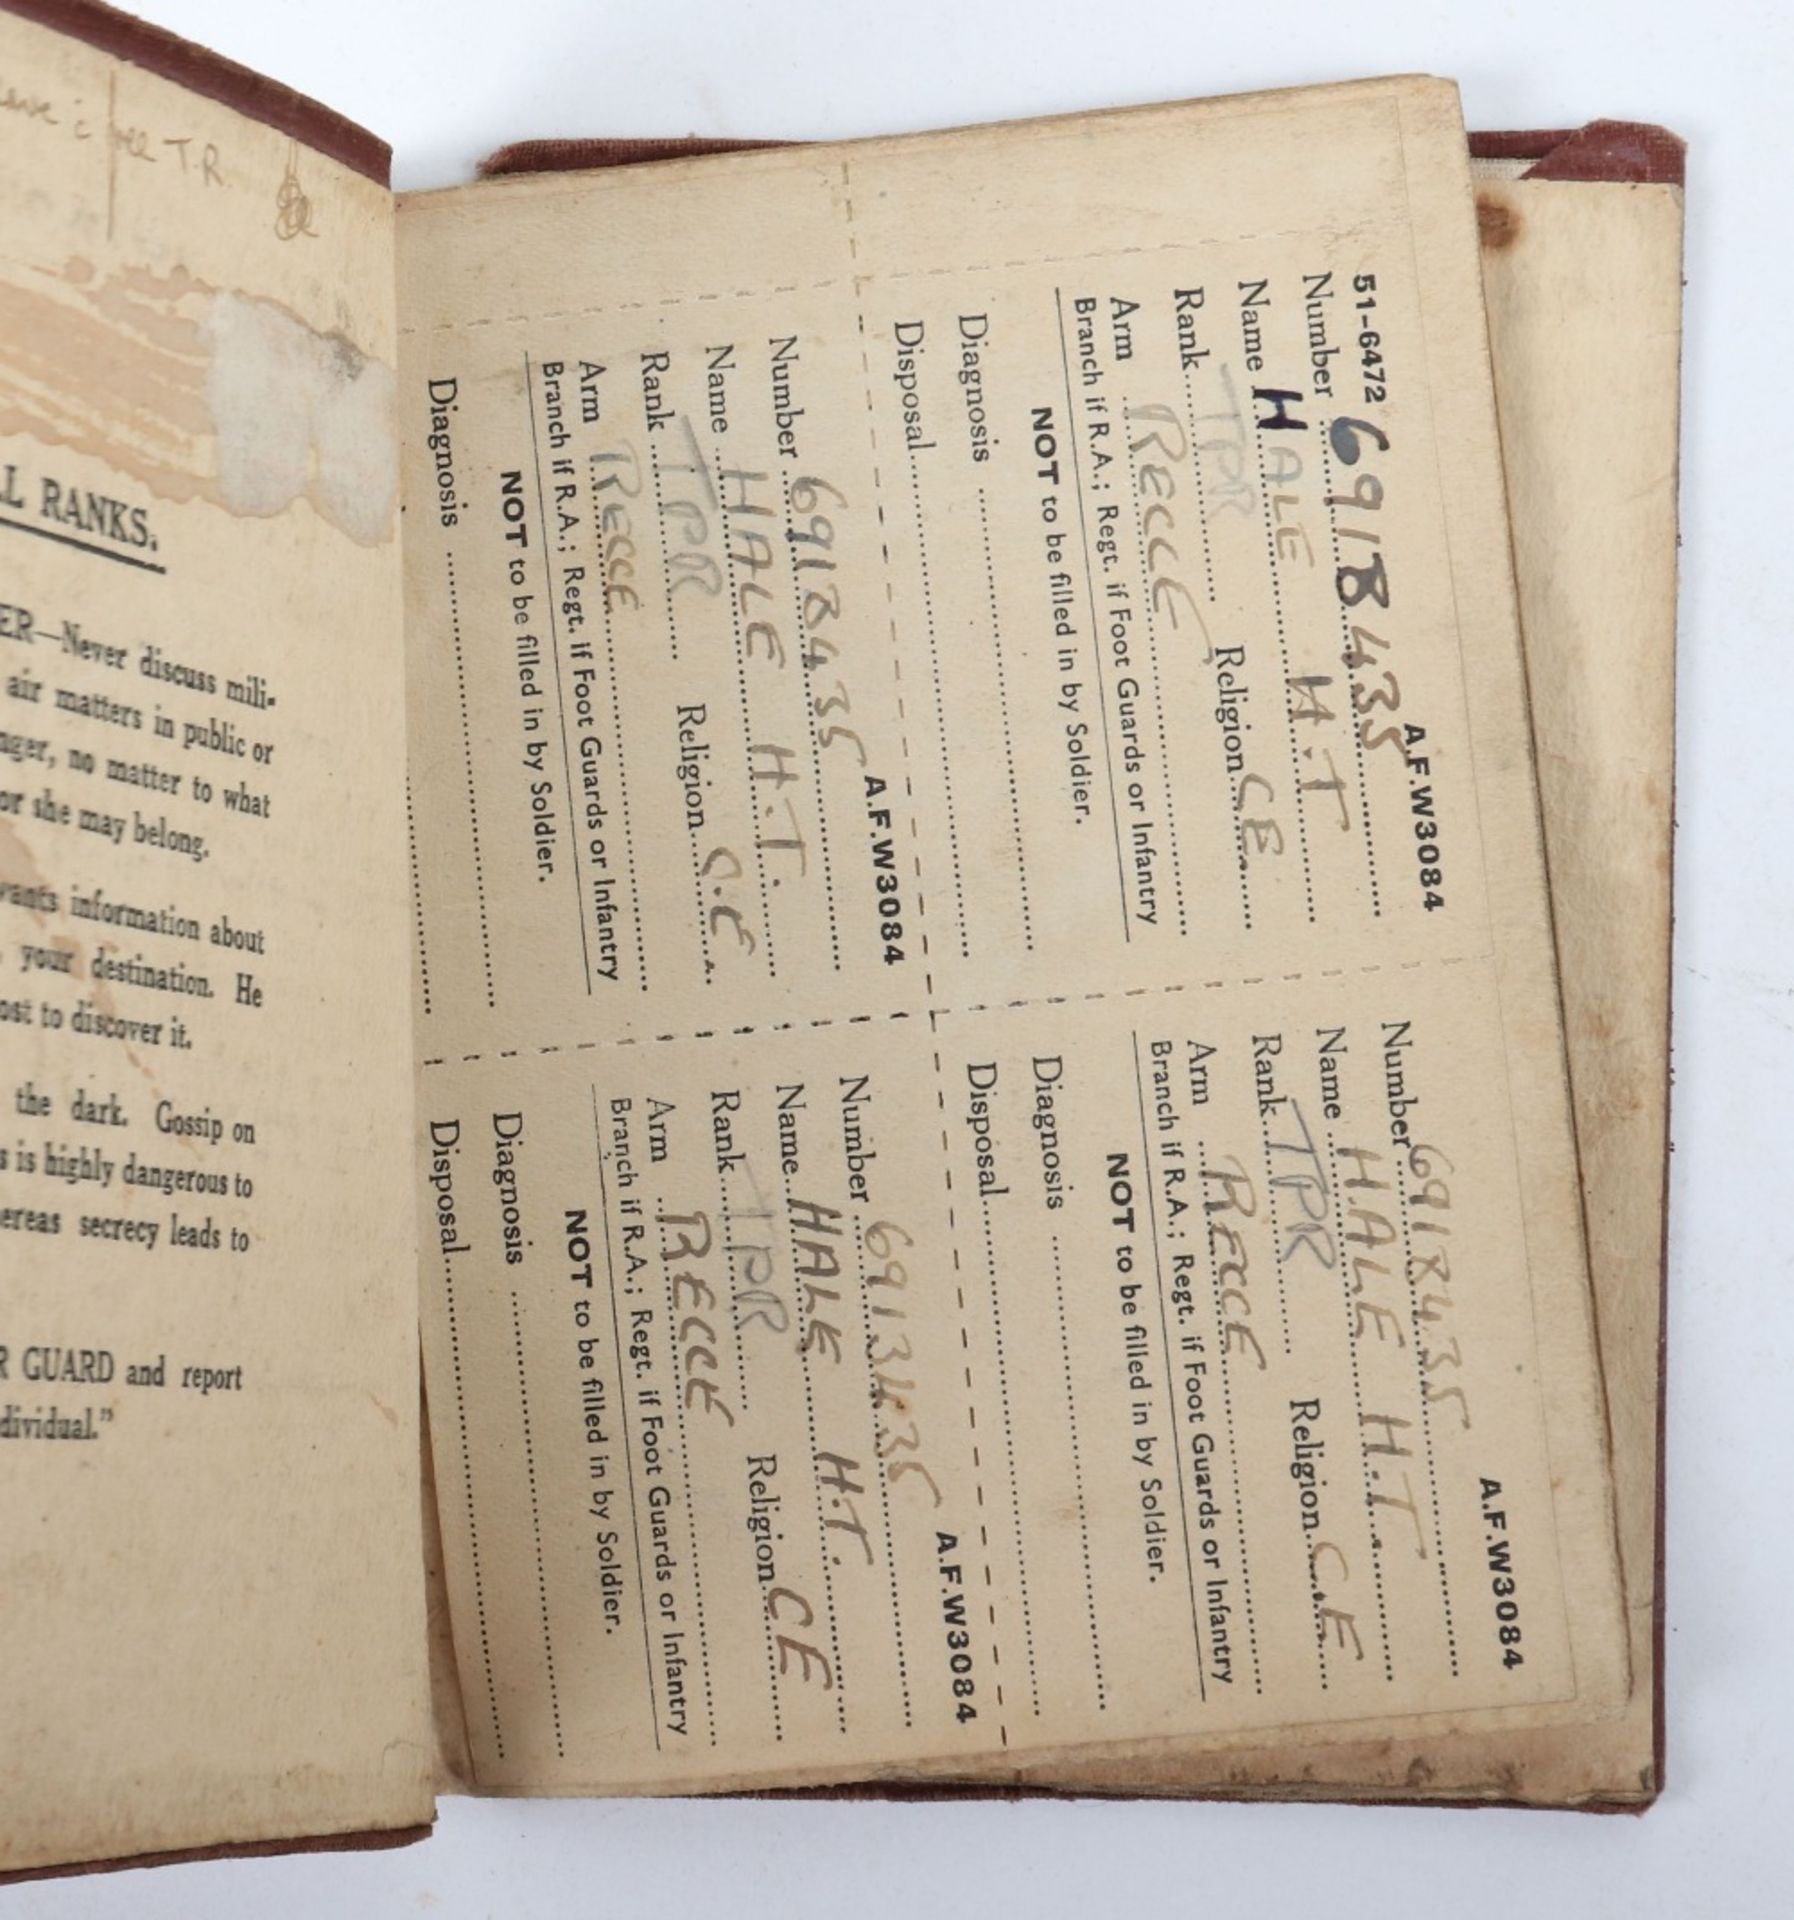 T.R.
LL RANKS.
ER—Never discuss mili-
air matters in public or
nger, no matter to what
or she may belong.
wants information about
, your destination. He
ost to discover it.
the dark. Gossip on
s is highly dangerous to
ereas secrecy leads to
R GUARD and report
dividual."
51-6472 A.F.W3084
Number 6918435
Name HALE H.T
Rank TPR Religion CE
Arm RECCE
Branch if R.A.; Regt. if Foot Guards or Infantry
NOT to be filled in by Soldier.
Diagnosis
Disposal
A.F.W3084
Number 6918435
Name HALE H.T.
Rank TPR Religion C.E
Arm RECCE
Branch if R.A.; Regt. if Foot Guards or Infantry
NOT to be filled in by Soldier.
Diagnosis
A.F.W3084
Number 6918435
Name HALE H.T.
Rank TPR Religion C.E
Arm RECCE
Branch if R.A.; Regt. if Foot Guards or Infantry
NOT to be filled in by Soldier.
Diagnosis
Disposal
A.F.W3084
Number 6918435
Name HALE H.T.
Rank TPR Religion CE
Arm RECCE
Branch if R.A.; Regt. if Foot Guards or Infantry
NOT to be filled in by Soldier.
Diagnosis
Disposal